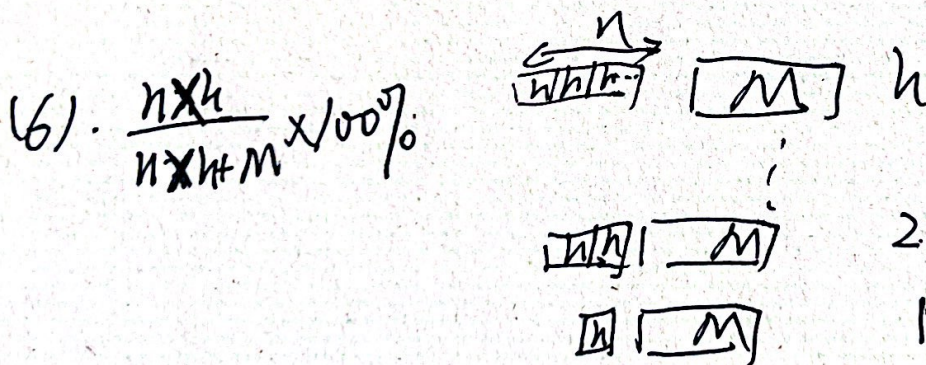 (6). n×h / n×h+M ×100%
n
h h h ... M n
⋮
h h M 2.
h M 1